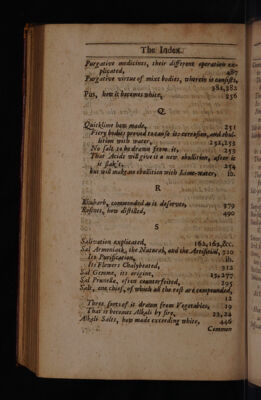 The Index.
Purgative medicines, their different operation ex-
plicated, 487
Purgative virtue of mixt bodies, wherein it consists,
381,382
Pus, how it becomes white, 256
Q
Quicklime how made, 251
Fiery bodies proved to cause its extension, and ebul-
lition with water, 251,252
No salt to be drawn from it, 253
That Acids will give it a new ebullition, after it
is slak't, 254
but will make an ebullition with Lime-water, ib.
R
Rhubarb, commended as it deserves, 379
Rosines, how distilled, 490
S
Salivation explicated, 162,163,&c.
Sal Armoniack, the Natural, and the Artificial, 310
Its Purification, ib.
Its Flowers Chalybeated, 312
Sal Gemma, its origine, 19,277
Sal Prunella, often counterfeited, 295
Salt, one chief, of which all the rest are compounded,
12
Three sorts of it drawn from Vegetables, 19
That it becomes Alkali by fire, 22,24
Alkali Salts, how made exceeding white, 446
Common